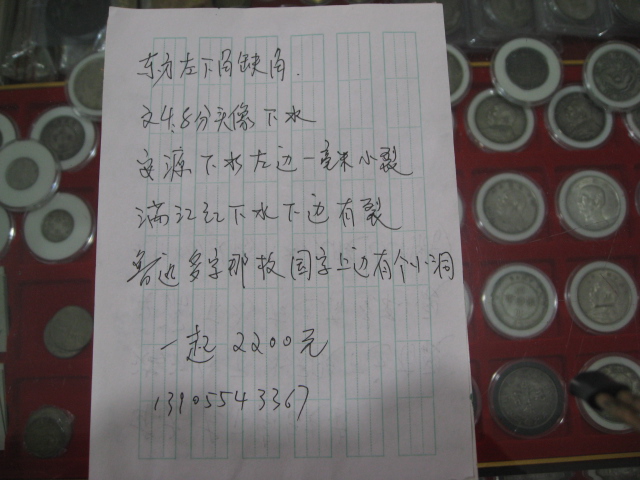 东方左下角缺角.
文4.8分头像下水
安源下水左边一毫米小裂
满江红下水下边有裂
鲁迅多字那枚国字上边有个小洞
一起2200元
13905543367